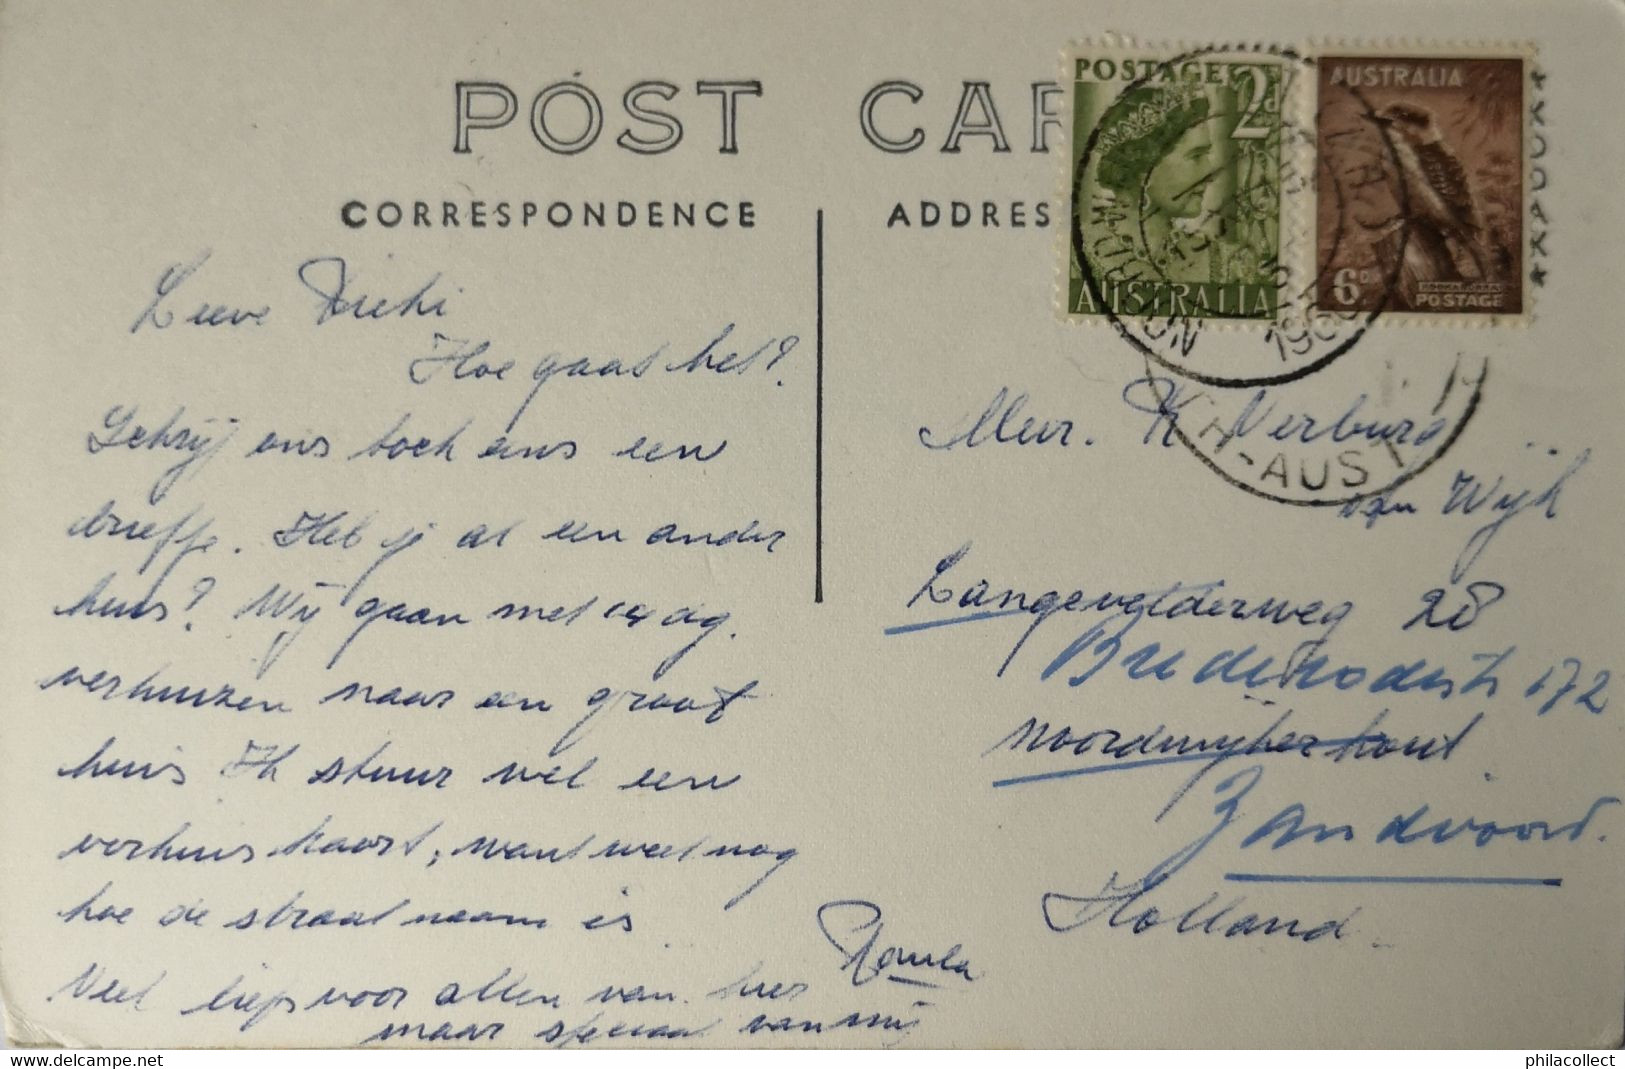 POST CAR
CORRESPONDENCE
ADDRES
POSTAGE 2d
AUSTRALIA
AUSTRALIA
6D
KOOKABURRA
POSTAGE
TH-AUST
Lieve
Hoe gaat het?
Schrijf ons toch eens een
briefje. Heb je al een ander
huis? Wij gaan met 14 dg.
verhuizen naar een groot
huis Ik stuur wel een
verhuis kaart, want weet nog
hoe de straatnaam is.
Veel liefs voor allen van hier
maar speciaal van mij
Mevr. K Verburg
van Wijk
Langevelderweg 28
Brederodestr 172
Noordwijkerhout
Zandvoort.
Holland
philacollect